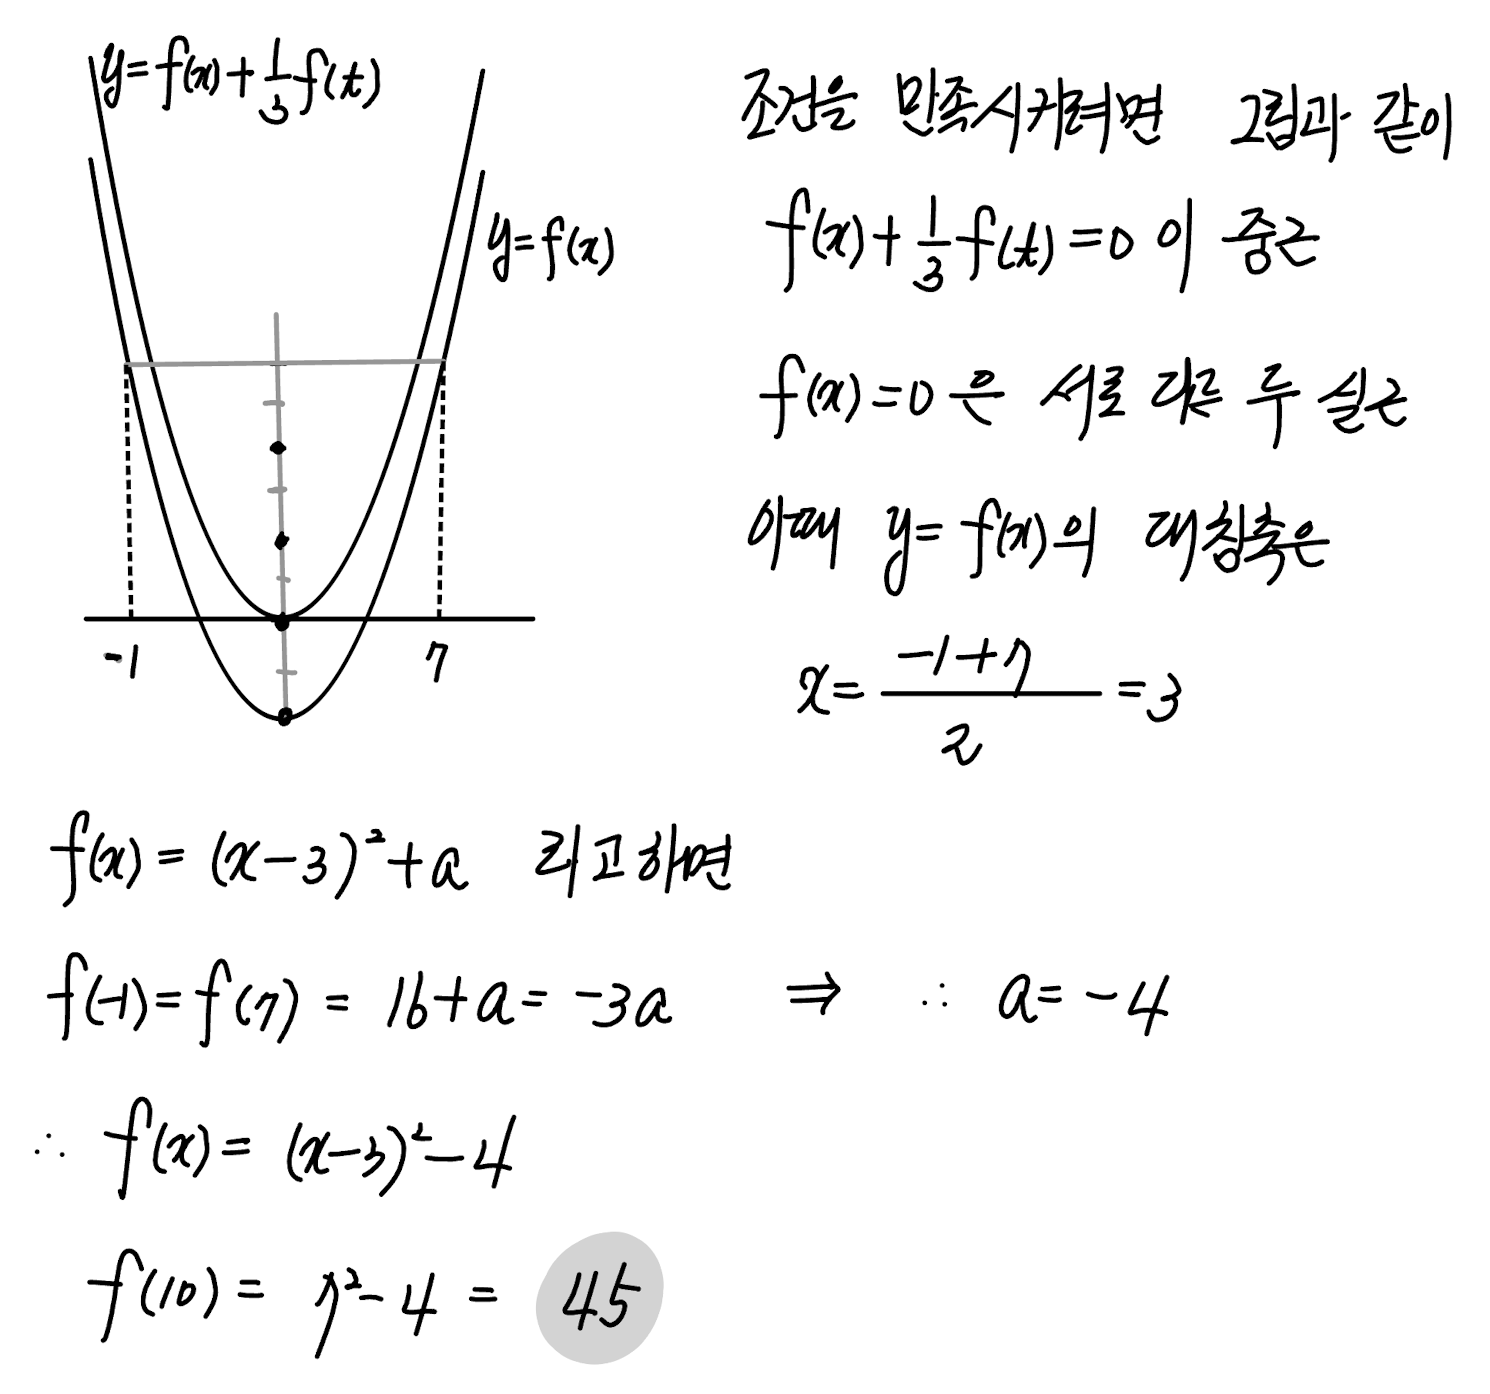 y=f(x)+1/3f(t)
y=f(x)
-1
7
조건을 만족시키려면 그림과 같이
f(x)+1/3f(t)=0 이 중근
f(x)=0 은 서로 다른 두 실근
이때 y=f(x)의 대칭축은
x=(-1+7)/2=3
f(x)=(x-3)²+a 라고하면
f(-1)=f(7)=16+a=-3a ⇒ ∴ a=-4
∴ f(x)=(x-3)²-4
f(10)=7²-4=45